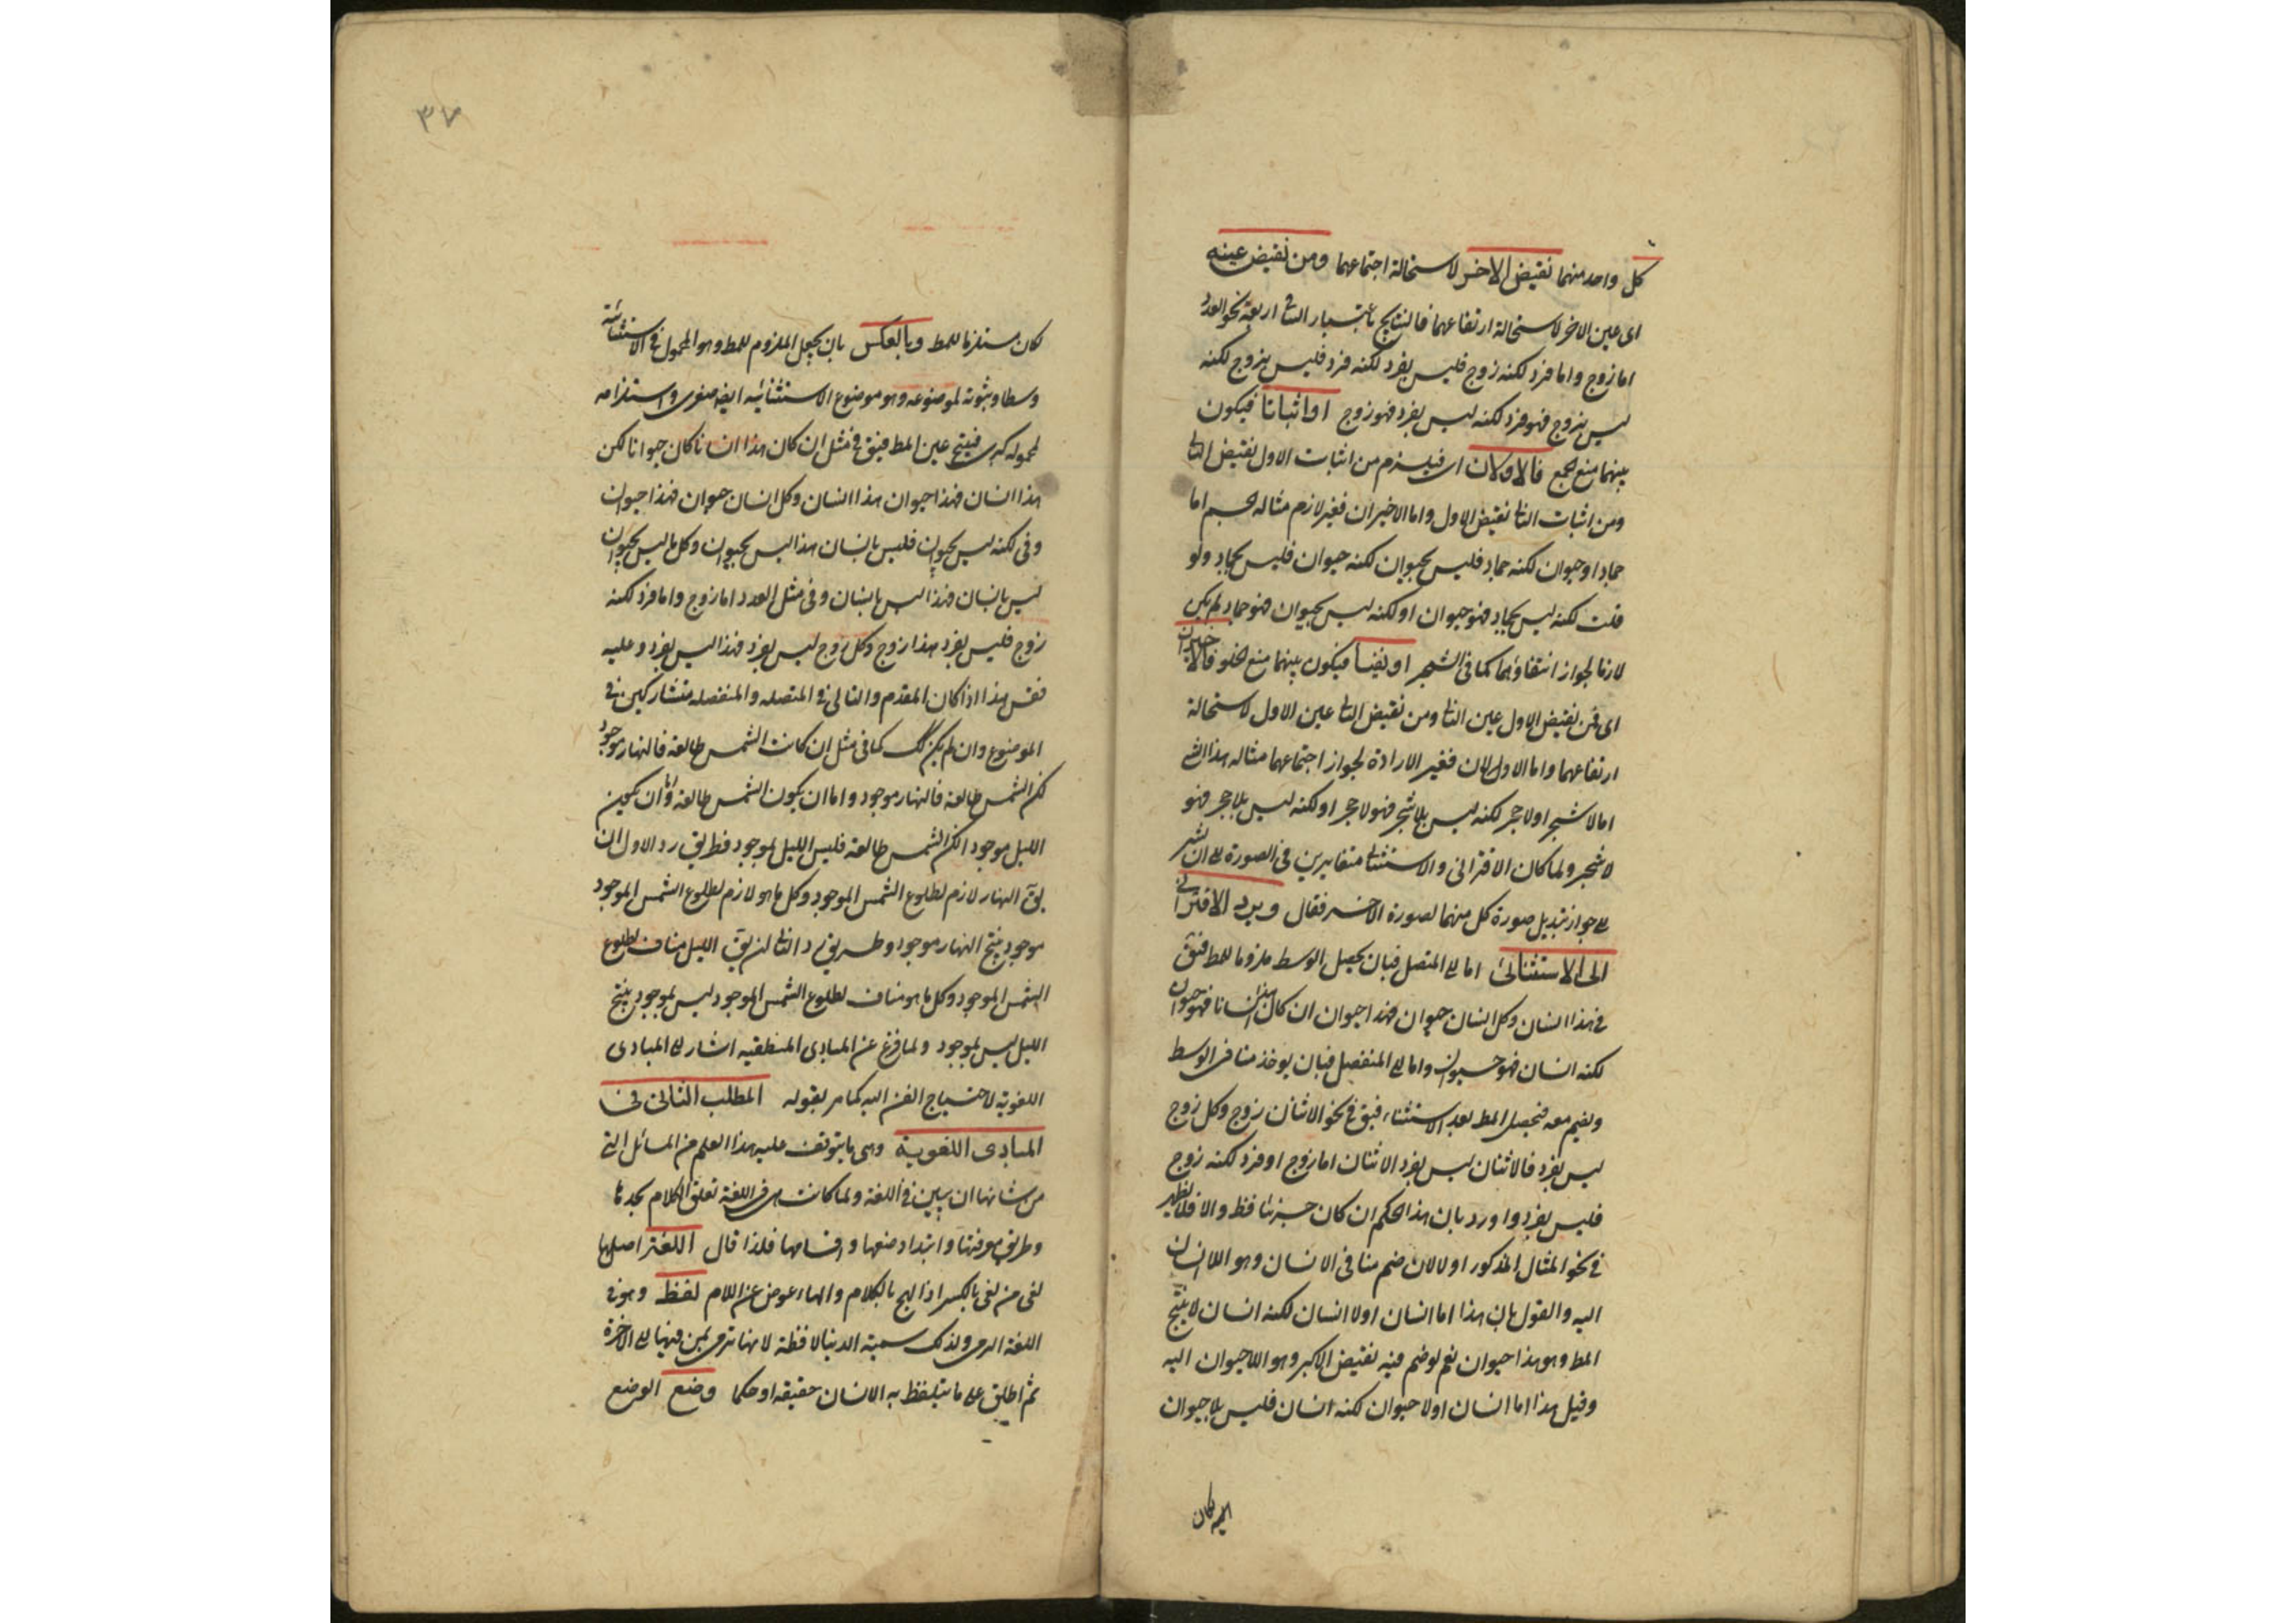 كل واحد منهما نقيض الاخر لاستحالة اجتماعهما ومن نقيض عينه
اى عين الاخر لاستحالة ارتفاعهما فالنتايج باعتبار الثانى اربعة نحو العدد
اما زوج واما فرد لكنه زوج فليس بفرد لكنه فرد فليس بزوج لكنه
ليس بزوج فهو فرد لكنه ليس بفرد فهو زوج او اثباتا فيكون
بينهما منع الجمع فالاولان اى فيلزم من اثبات الاول نقيض الثانى
ومن اثبات الثانى نقيض الاول واما الاخيران فغير لازم مثاله الجسم اما
جماد او حيوان لكنه جماد فليس بحيوان لكنه حيوان فليس بجماد ولو
قلت لكنه ليس بجماد فهو حيوان او لكنه ليس بحيوان فهو جماد لم يكن
لازما لجواز انتفاؤهما كما فى الشجر او نفيا فيكون بينهما منع الخلو فالاخيران
اى فمن نقيض الاول عين الثانى ومن نقيض الثانى عين الاول لاستحالة
ارتفاعهما واما الاولان فغير الارادة لجواز اجتماعهما مثاله هذا الشئ
اما لا شجر او لا حجر لكنه ليس بلا شجر فهو لا حجر او لكنه ليس بلا حجر فهو
لا شجر ولما كان الاقترانى والاستثنائى متغايرين فى الصورة الى ان يشير
الى جواز تبديل صورة كل منهما لصورة الاخر فقال ويرد الاقترانى
الى الاستثنائى اما الى المتصل فبان يجعل الوسط ملزوما للمط فيق
فى هذا انسان وكل انسان حيوان فهذا حيوان ان كان هذا انسانا فهو حيوان
لكنه انسان فهو حيوان واما الى المنفصل فبان يوخذ منافى الوسط
ويضم معه فيحصل المط بعد الاستثناء فيق فى نحو الاثنان زوج وكل زوج
ليس بفرد فالاثنان ليس بفرد الاثنان اما زوج او فرد لكنه زوج
فليس بفرد واورد بان هذا الحكم ان كان جزئيا فظ والا فلا يظهر
فى نحو المثال المذكور اولا لان ضم منافى الانسان وهو اللاانسان
اليه والقول بان هذا اما انسان او لا انسان لكنه انسان لا ينتج
المط وهو هذا حيوان نعم لو ضم فيه نقيض الاكبر وهو اللاحيوان اليه
وقيل هذا اما انسان او لا حيوان لكنه انسان فليس بلا حيوان
اليه لكان
٣٧
لكان مستلزما للمط وبالعكس بان يجعل الملزوم للمط وهو المحمول فى الاستثنائية
وسطا وثبوته لموضوعه وهو موضوع الاستثنائيه ايضا صغرى واستلزامه
لمحموله كبرى فينتج عين المط فيق فى مثل ان كان هذا انسانا كان حيوانا لكن
هذا انسان فهذا حيوان هذا انسان وكل انسان حيوان فهذا حيوان
وفى لكنه ليس بحيوان فليس بانسان هذا ليس بحيوان وكل ما ليس بحيوان
ليس بانسان فهذا ليس بانسان وفى مثل العدد اما زوج واما فرد لكنه
زوج فليس بفرد هذا زوج وكل زوج ليس بفرد فهذا ليس بفرد وعليه
فقس هذا اذا كان المقدم والتالى فى المتصله والمنفصله متشاركين فى
الموضوع وان لم يكن كك كما فى مثل ان كانت الشمس طالعه فالنهار موجود
لكن الشمس طالعه فالنهار موجود واما ان يكون الشمس طالعه واما ان يكون
الليل موجود الكن الشمس طالعه فليس الليل بموجود فطريق رد الاول ان
يق النهار لازم لطلوع الشمس الموجود وكل ما هو لازم لطلوع الشمس الموجود
موجود ينتج النهار موجود وطريق رد الثانى ان يق الليل مناف لطلوع
الشمس الموجود وكل ما هو مناف لطلوع الشمس الموجود ليس بموجود ينتج
الليل ليس بموجود ولما فرغ عن المبادى المنطقيه اشار الى المبادى
اللغوية لاحتياج الفن اليه كما مر بقوله المطلب الثانى فى
المبادى اللغوية وهى ما يتوقف عليه هذا العلم من المسائل التى
من شانها ان يبين فى اللغة ولما كانت معرفة اللغة تعلق الكلام بحدها
وطريق معرفتها وابتداء وضعها واقسامها فلذا قال اللغة اصلها
لغى من لغى بالكسر اذا لهج بالكلام والهاء عوض عن اللام لفظ وهو فى
اللغة الرمى ولذلك سمية الدنيا لافظة لانها ترمى بمن فيها الى الاخرة
ثم اطلق على ما يتلفظ به الانسان حقيقه او حكما وضع الوضع